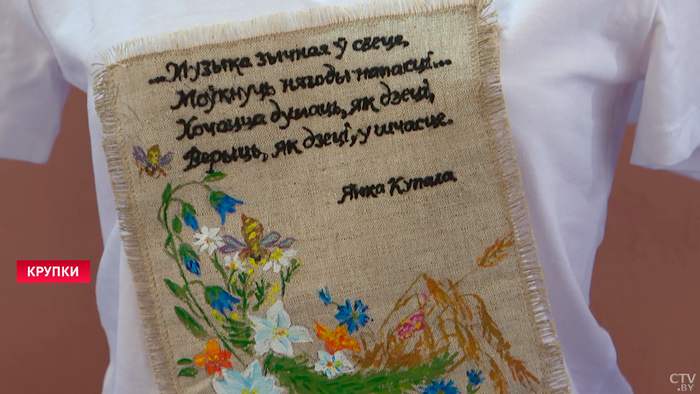 ...Музыка зычная ў свеце,
Моўкнуць нягоды напасці...
Хочацца думаць, як дзеці,
Верыць, як дзеці, у шчасце.
Янка Купала
КРУПКИ
CTV
.BY